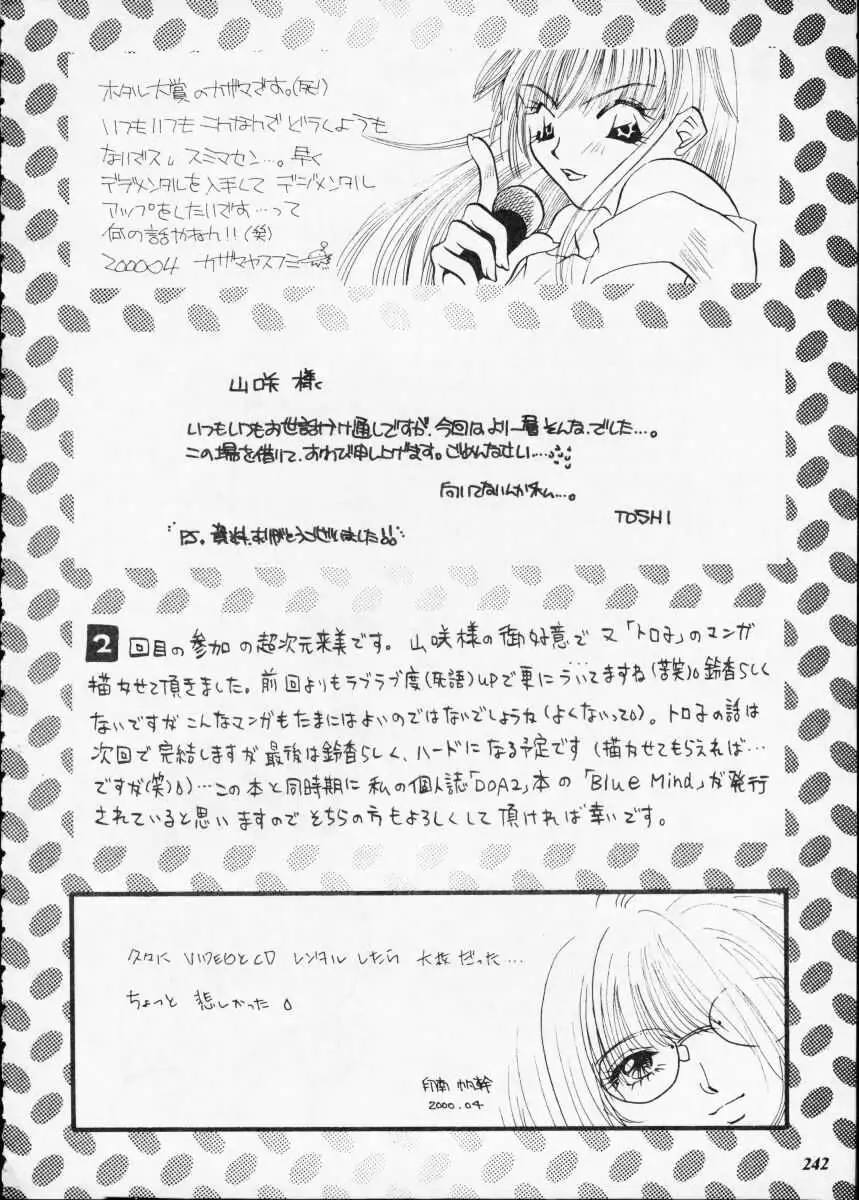 ホタル大賞のカザマです。(死!)
いつもいつもこれなんでどうしようも
ないデス。スミマセン…。早く
デジメンタルを入手して デジメンタル
アップをしたいです…って
何の話やねん!!(笑)
2000.04 カザマヤスフミ
山咲 様
いつもいつもお世話かけ通しですが、今回はより一層そんな、でした…。
この場を借りて、おわび申し上げます。ごめんなさい…
向いてないんかねぇ…。
TOSHI
PS. 資料、ありがとうございました!!
2回目の参加の超次元来美です。山咲様の御好意で又「トロ子」のマンガ
描かせて頂きました。前回よりもラブラブ度(死語)UPで更にういてますね(苦笑)。鈴香らしく
ないですが こんなマンガもたまにはよいのではないでしょうね(よくないって)。トロ子の話は
次回で完結しますが 最後は鈴香らしく、ハードになる予定です(描かせてもらえれば…
ですが(笑))…この本と同時期に 私の個人誌「DOA2」本の「Blue Mind」が発行
されていると思いますので そちらの方もよろしくして頂ければ幸いです。
久々に VIDEOとCD レンタルしたら 大抵だった…
ちょっと 悲しかった
印南 帆幹
2000.04
242